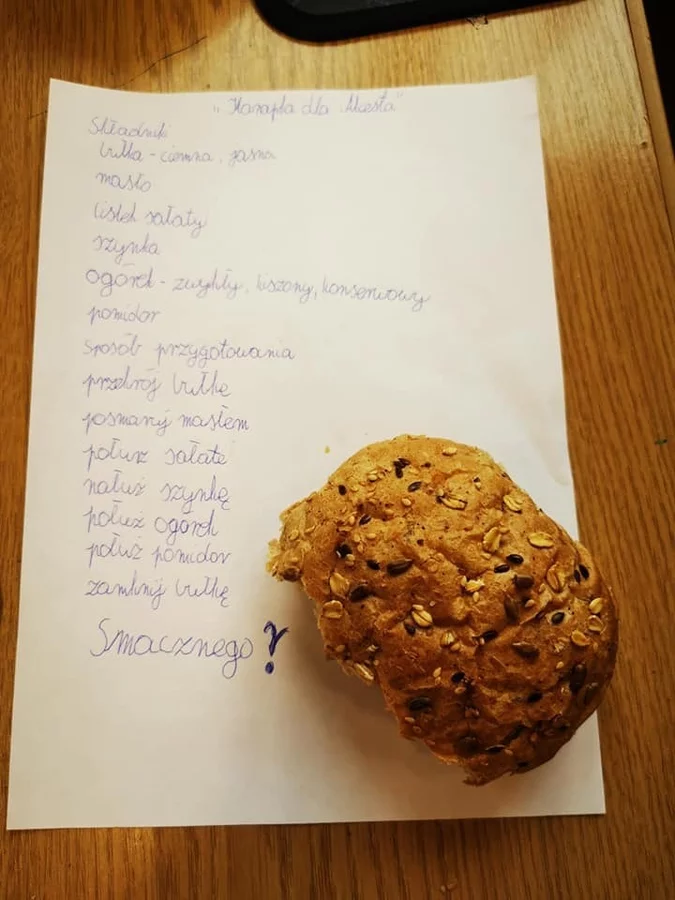 „Kanapka dla Miesta"
Składniki
bułka - ciemna, jasna
masło
listek sałaty
szynka
ogórek - zwykły, kiszony, konserwowy
pomidor
sposób przygotowania
przekrój bułkę
posmaruj masłem
połusz sałate
nałuż szynkę
połuż ogórek
połuż pomidor
zamknij bułkę
Smacznego!